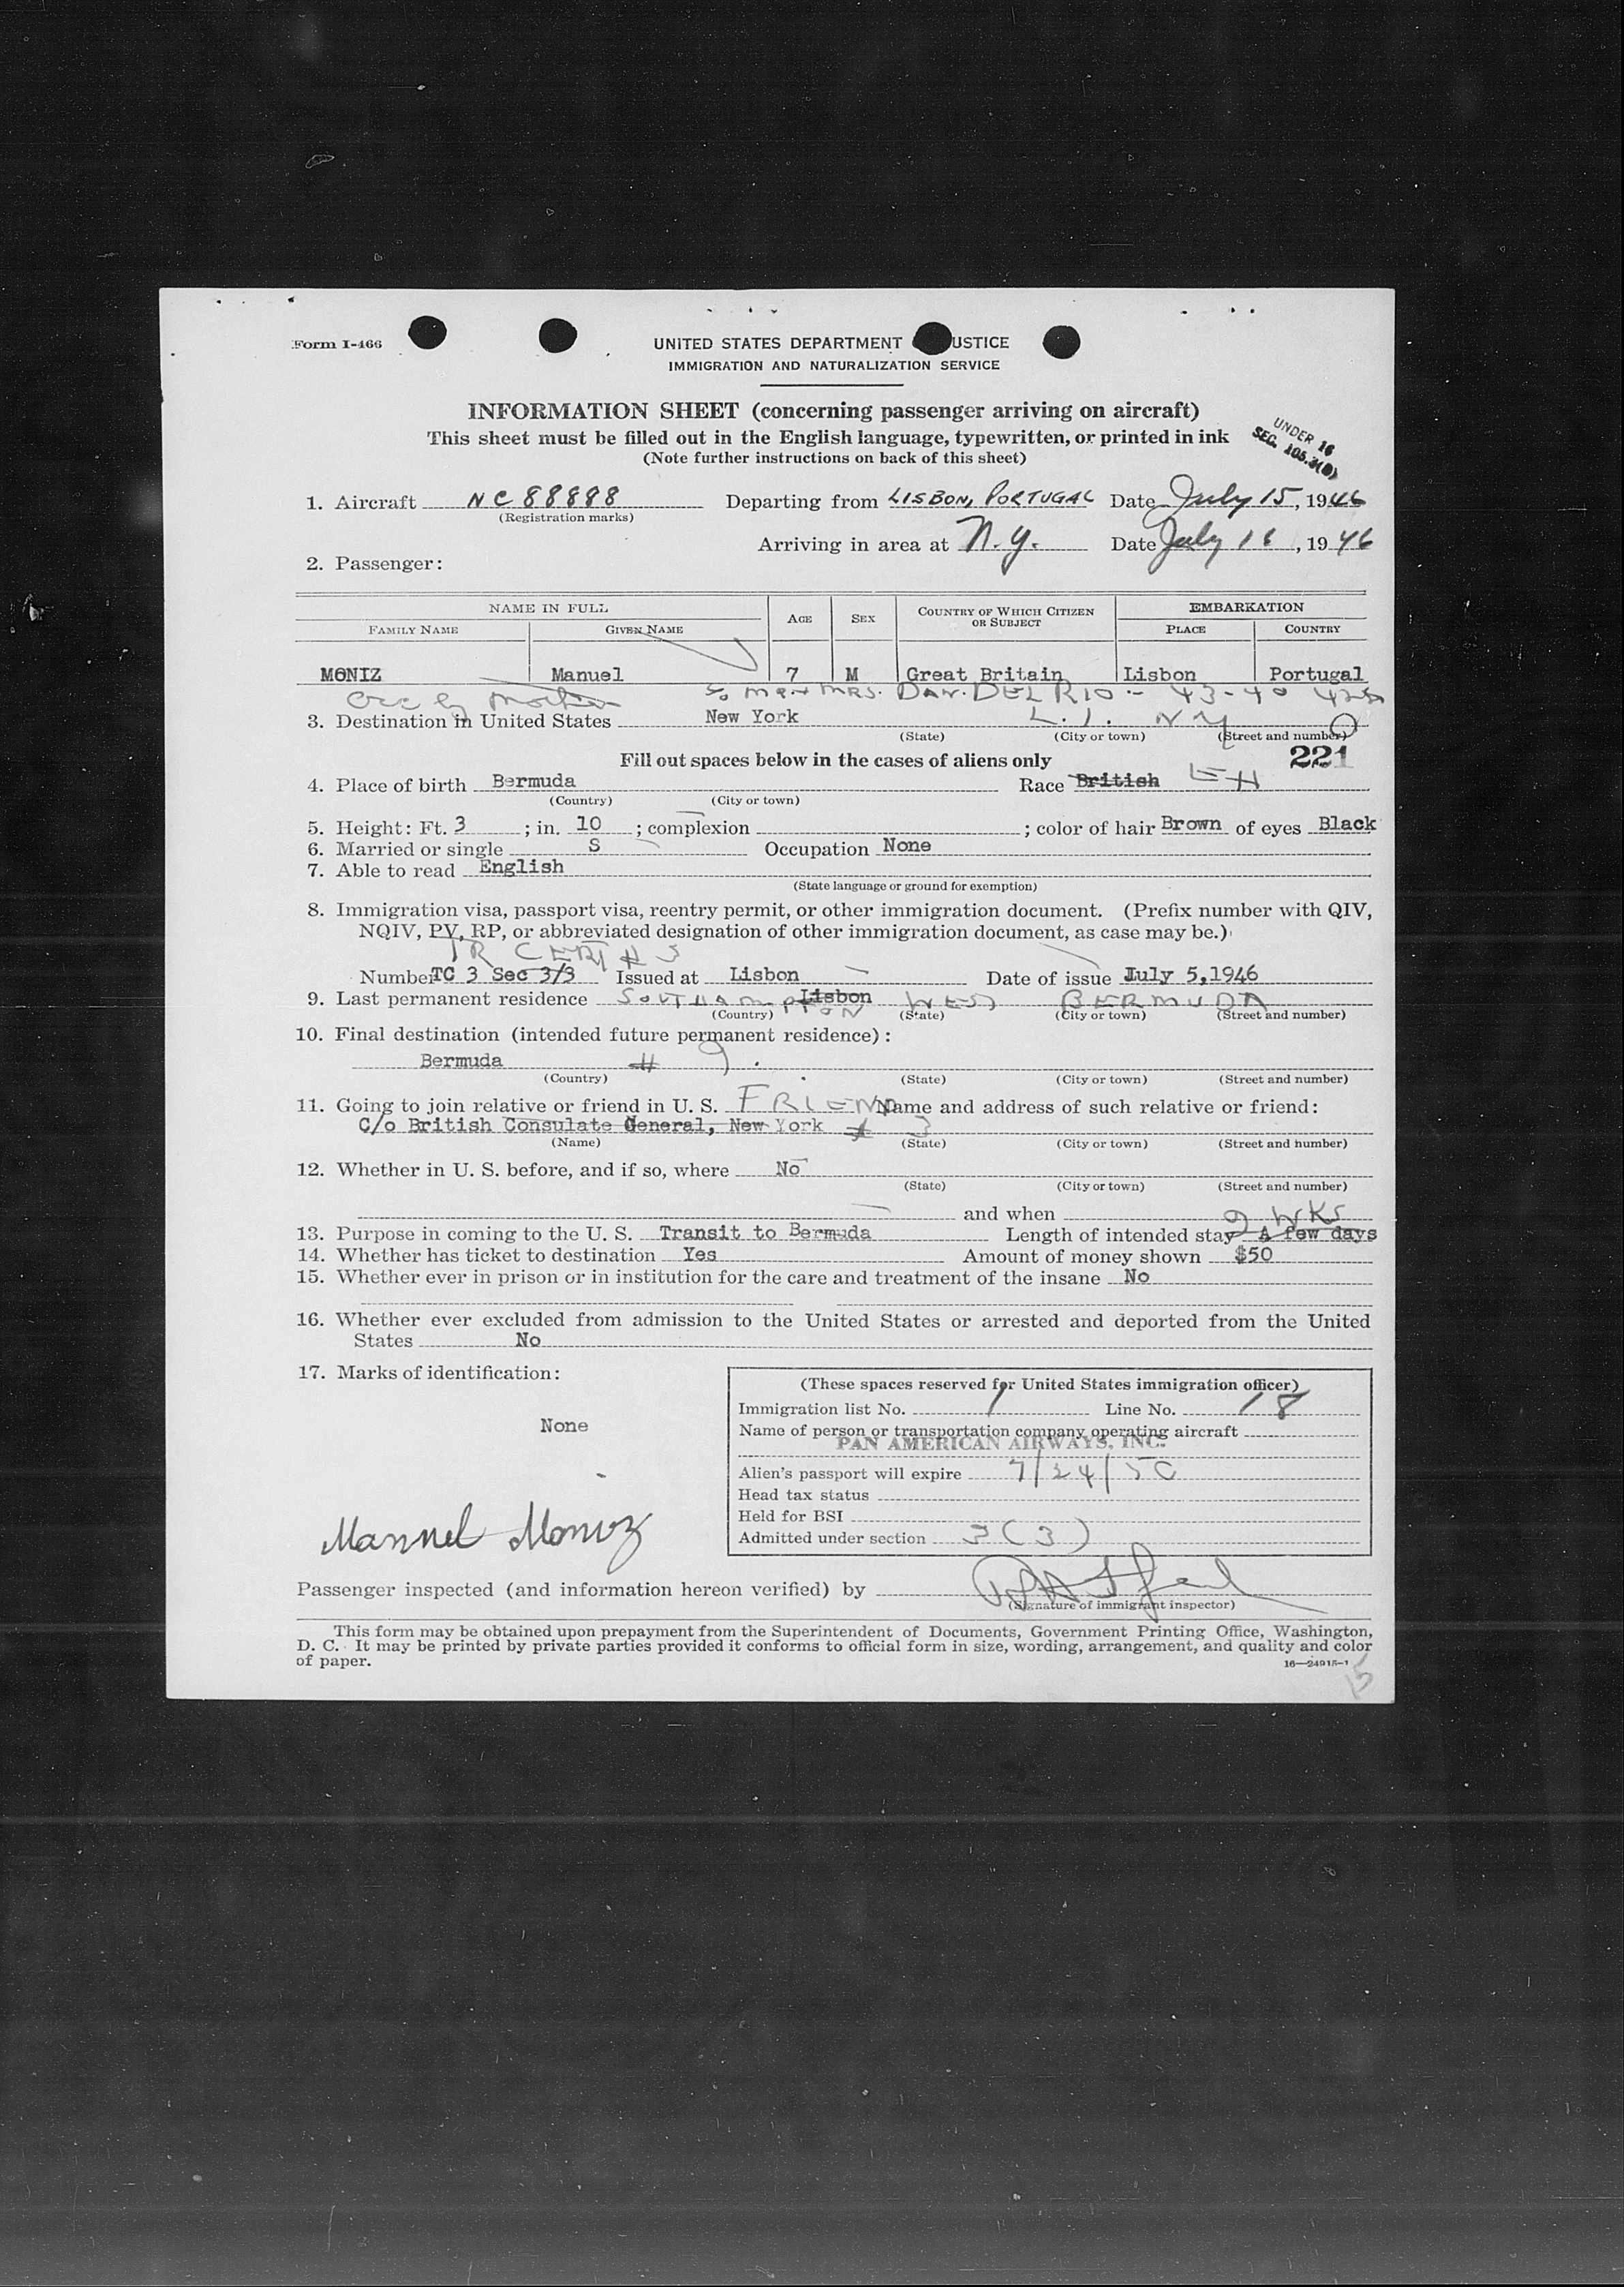 Form I-466
UNITED STATES DEPARTMENT USTICE
IMMIGRATION AND NATURALIZATION SERVICE
INFORMATION SHEET (concerning passenger arriving on aircraft)
This sheet must be filled out in the English language, typewritten, or printed in ink
(Note further instructions on back of this sheet)
UNDER 16
SEC. 105.3(B)
1. Aircraft NC 88888 Departing from LISBON, PORTUGAL Date July 15, 1946
(Registration marks)
Arriving in area at N.Y. Date July 16, 1946
2. Passenger:
NAME IN FULL AGE SEX COUNTRY OF WHICH CITIZEN OR SUBJECT EMBARKATION
FAMILY NAME GIVEN NAME PLACE COUNTRY
MONIZ Manuel 7 M Great Britain Lisbon Portugal
Acc by Mother % MR & MRS. DAN. DEL RIO - 43-40 42
3. Destination in United States New York L. I. N Y
(State) (City or town) (Street and number)
Fill out spaces below in the cases of aliens only 221
4. Place of birth Bermuda Race British EH
(Country) (City or town)
5. Height: Ft. 3 ; in. 10 ; complexion ; color of hair Brown of eyes Black
6. Married or single S Occupation None
7. Able to read English
(State language or ground for exemption)
8. Immigration visa, passport visa, reentry permit, or other immigration document. (Prefix number with QIV,
NQIV, PV, RP, or abbreviated designation of other immigration document, as case may be.)
TR CERT # 3
Number TC 3 Sec 3/3 Issued at Lisbon Date of issue July 5,1946
9. Last permanent residence Lisbon SOUTHAMPTON WEST BERMUDA
(Country) (State) (City or town) (Street and number)
10. Final destination (intended future permanent residence):
Bermuda # 9.
(Country) (State) (City or town) (Street and number)
11. Going to join relative or friend in U. S. FRIEND Name and address of such relative or friend:
C/o British Consulate General, New York # 3
(Name) (State) (City or town) (Street and number)
12. Whether in U. S. before, and if so, where No
(State) (City or town) (Street and number)
and when
2 WKS
13. Purpose in coming to the U. S. Transit to Bermuda Length of intended stay A few days
14. Whether has ticket to destination Yes Amount of money shown $50
15. Whether ever in prison or in institution for the care and treatment of the insane No
16. Whether ever excluded from admission to the United States or arrested and deported from the United
States No
17. Marks of identification:
None
(These spaces reserved for United States immigration officer)
Immigration list No. 1 Line No. 18
Name of person or transportation company operating aircraft
PAN AMERICAN AIRWAYS, INC.
Alien's passport will expire 7/24/50
Head tax status
Held for BSI
Admitted under section 3(3)
Mannuel Moniz
Passenger inspected (and information hereon verified) by
(Signature of immigrant inspector)
This form may be obtained upon prepayment from the Superintendent of Documents, Government Printing Office, Washington,
D. C. It may be printed by private parties provided it conforms to official form in size, wording, arrangement, and quality and color
of paper.
16—24915-1
15